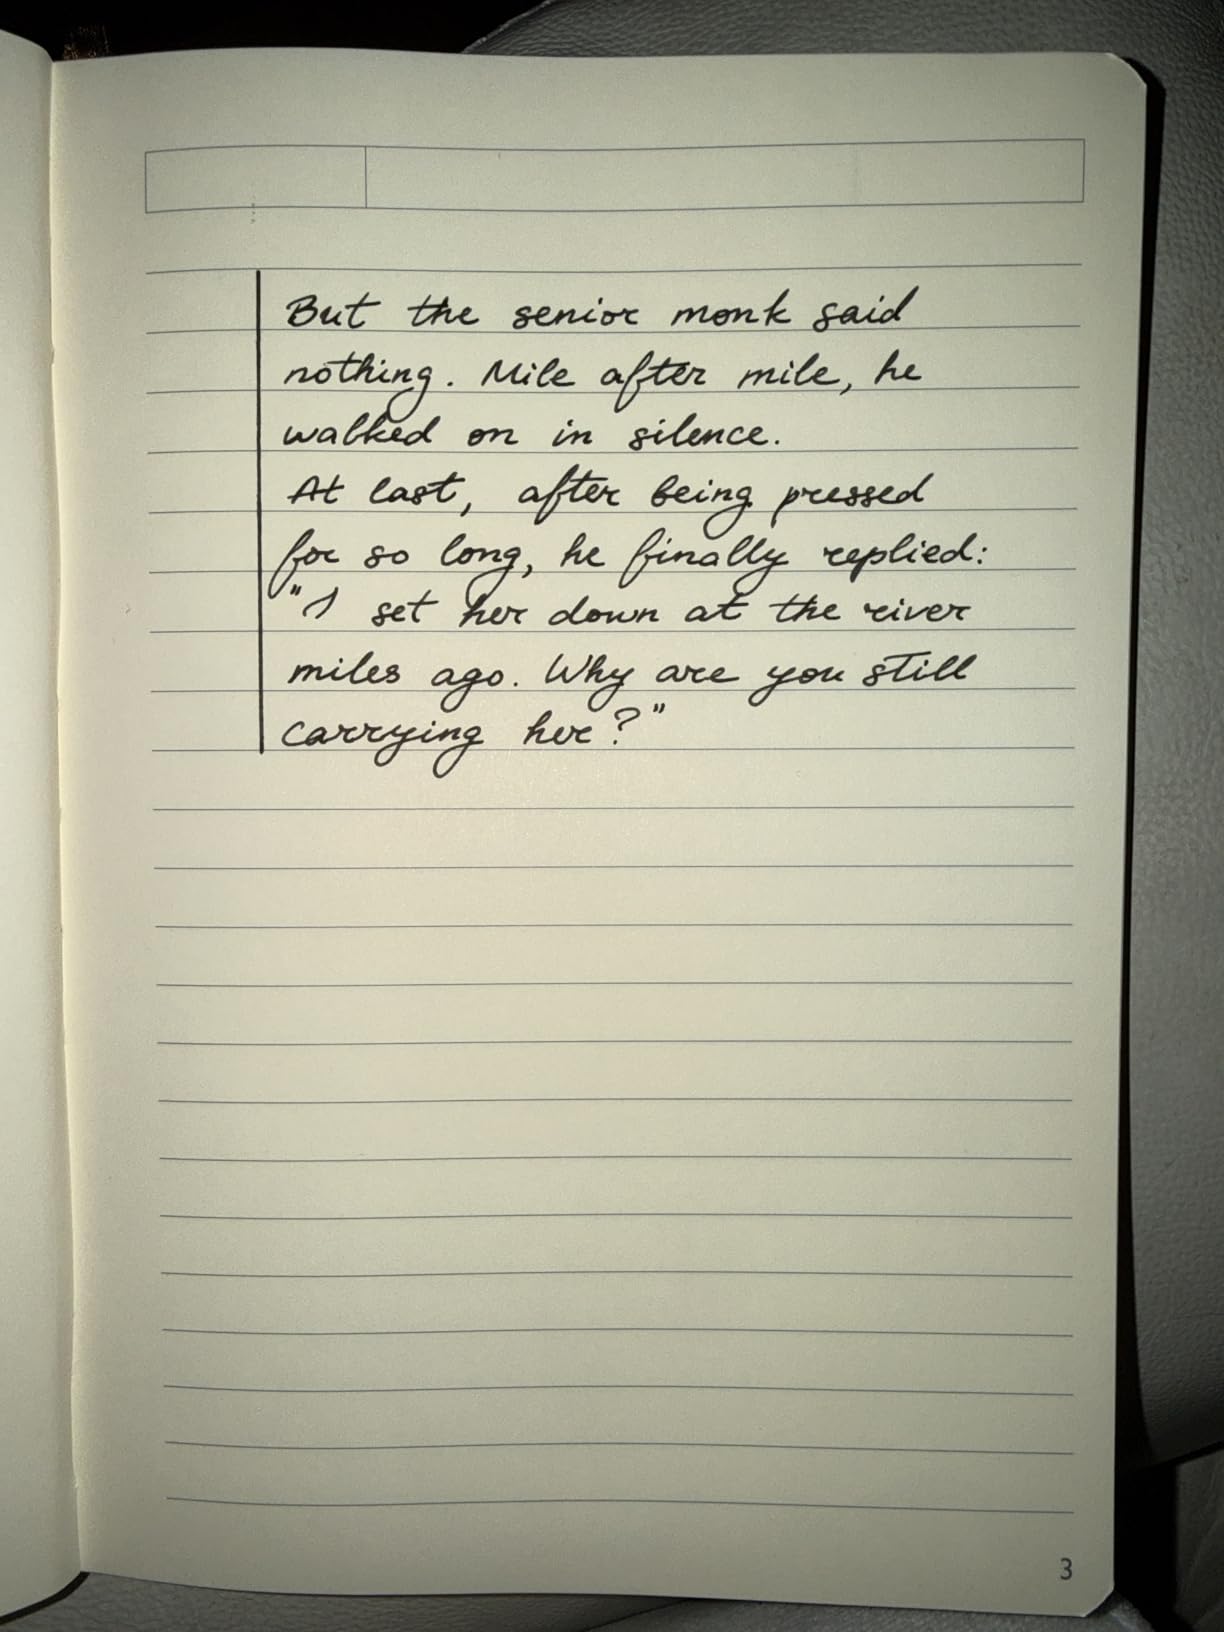 But the senior monk said
nothing. Mile after mile, he
walked on in silence.
At last, after being pressed
for so long, he finally replied:
"I set her down at the river
miles ago. Why are you still
carrying her?"
3